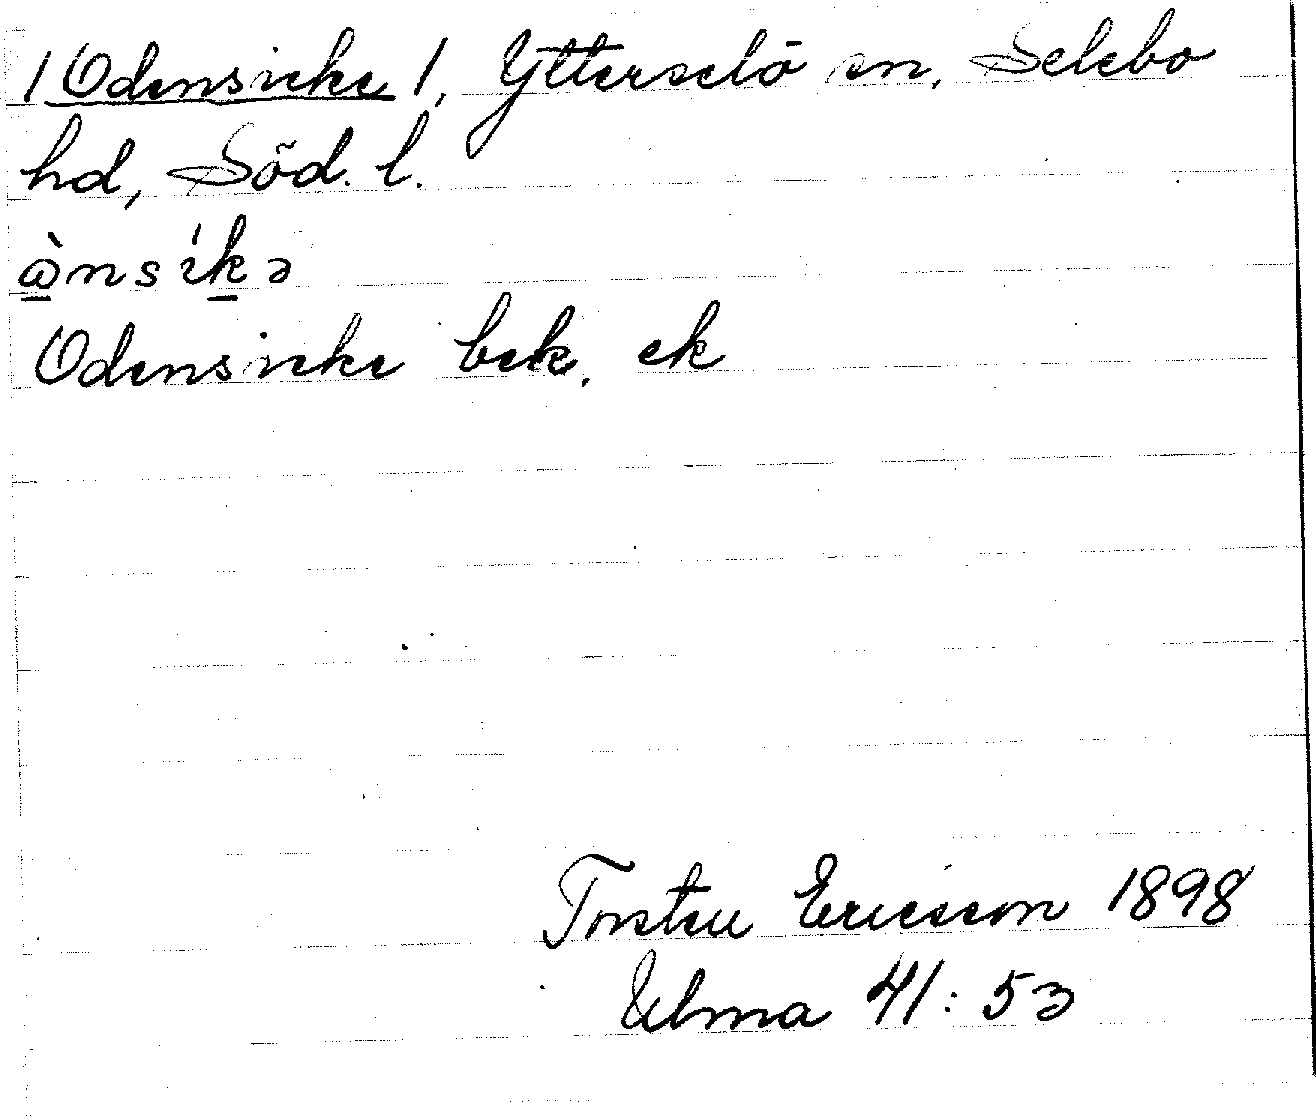 1 Odensicke 1, Ytterselö sn, Selebo
hd, Söd. l.
Odensicke bek. ek
Torsten Ericsson 1898
Ulma 41: 53